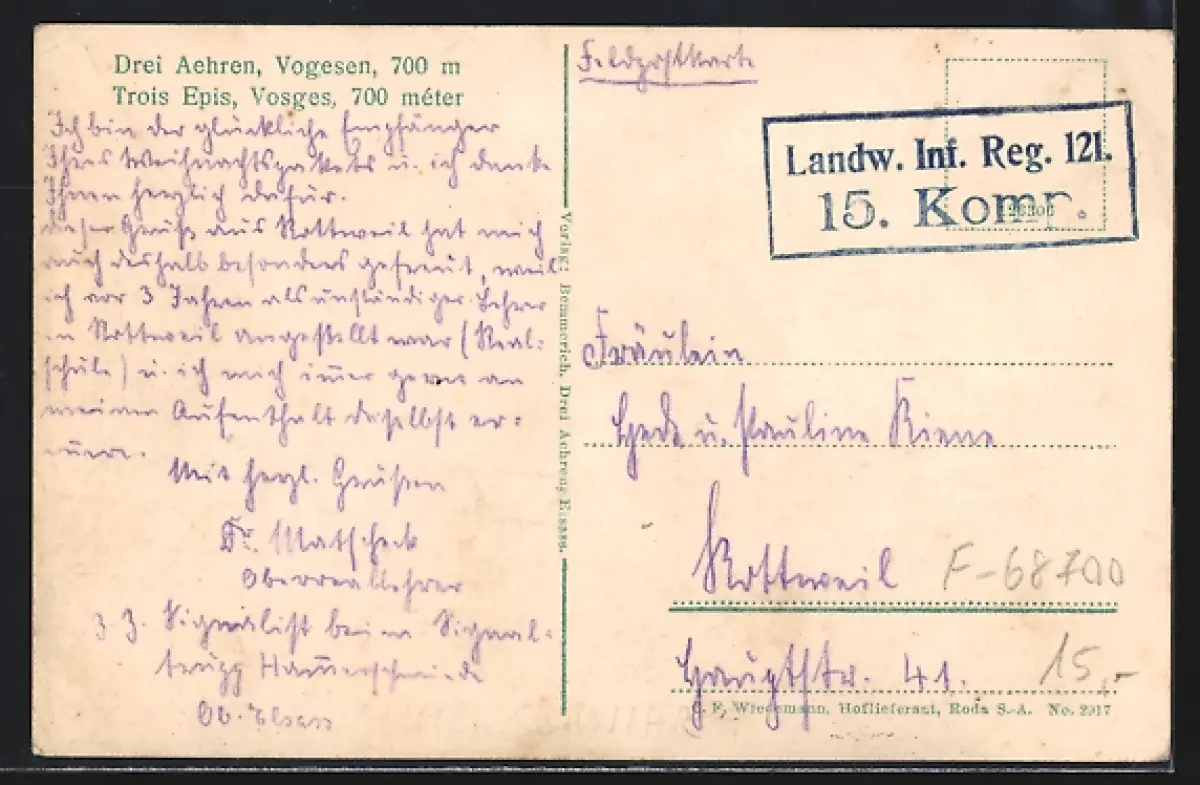 Drei Aehren, Vogesen, 700 m
Trois Epis, Vosges, 700 méter
Ich bin der glückliche Empfänger
Ihres Weihnachtspakets u. ich danke
Ihnen herzlich dafür.
Dieser Gruß aus Rottweil hat mich
auch deshalb besonders gefreut, weil
ich vor 3 Jahren als unständiger Lehrer
in Rottweil angestellt war (Real-
schule) u. ich mich immer gerne an
meinen Aufenthalt daselbst er-
innere.
Mit herzl. Grüßen
Dr. Matscheck
Oberreallehrer
z. Z. Signalist beim Signal-
trupp Hammerschmiede
Ob. Elsass
Verlag: Bemmerich, Drei Aehren, Elsass.
Feldpostkarte
Landw. Inf. Reg. 121.
15. Komp.
Fräulein
u. Pauline Kiene
Rottweil
Hauptstr. 41.
F-68700
15,-
C. F. Wiedemann, Hoflieferant, Roda S.-A. No. 2917